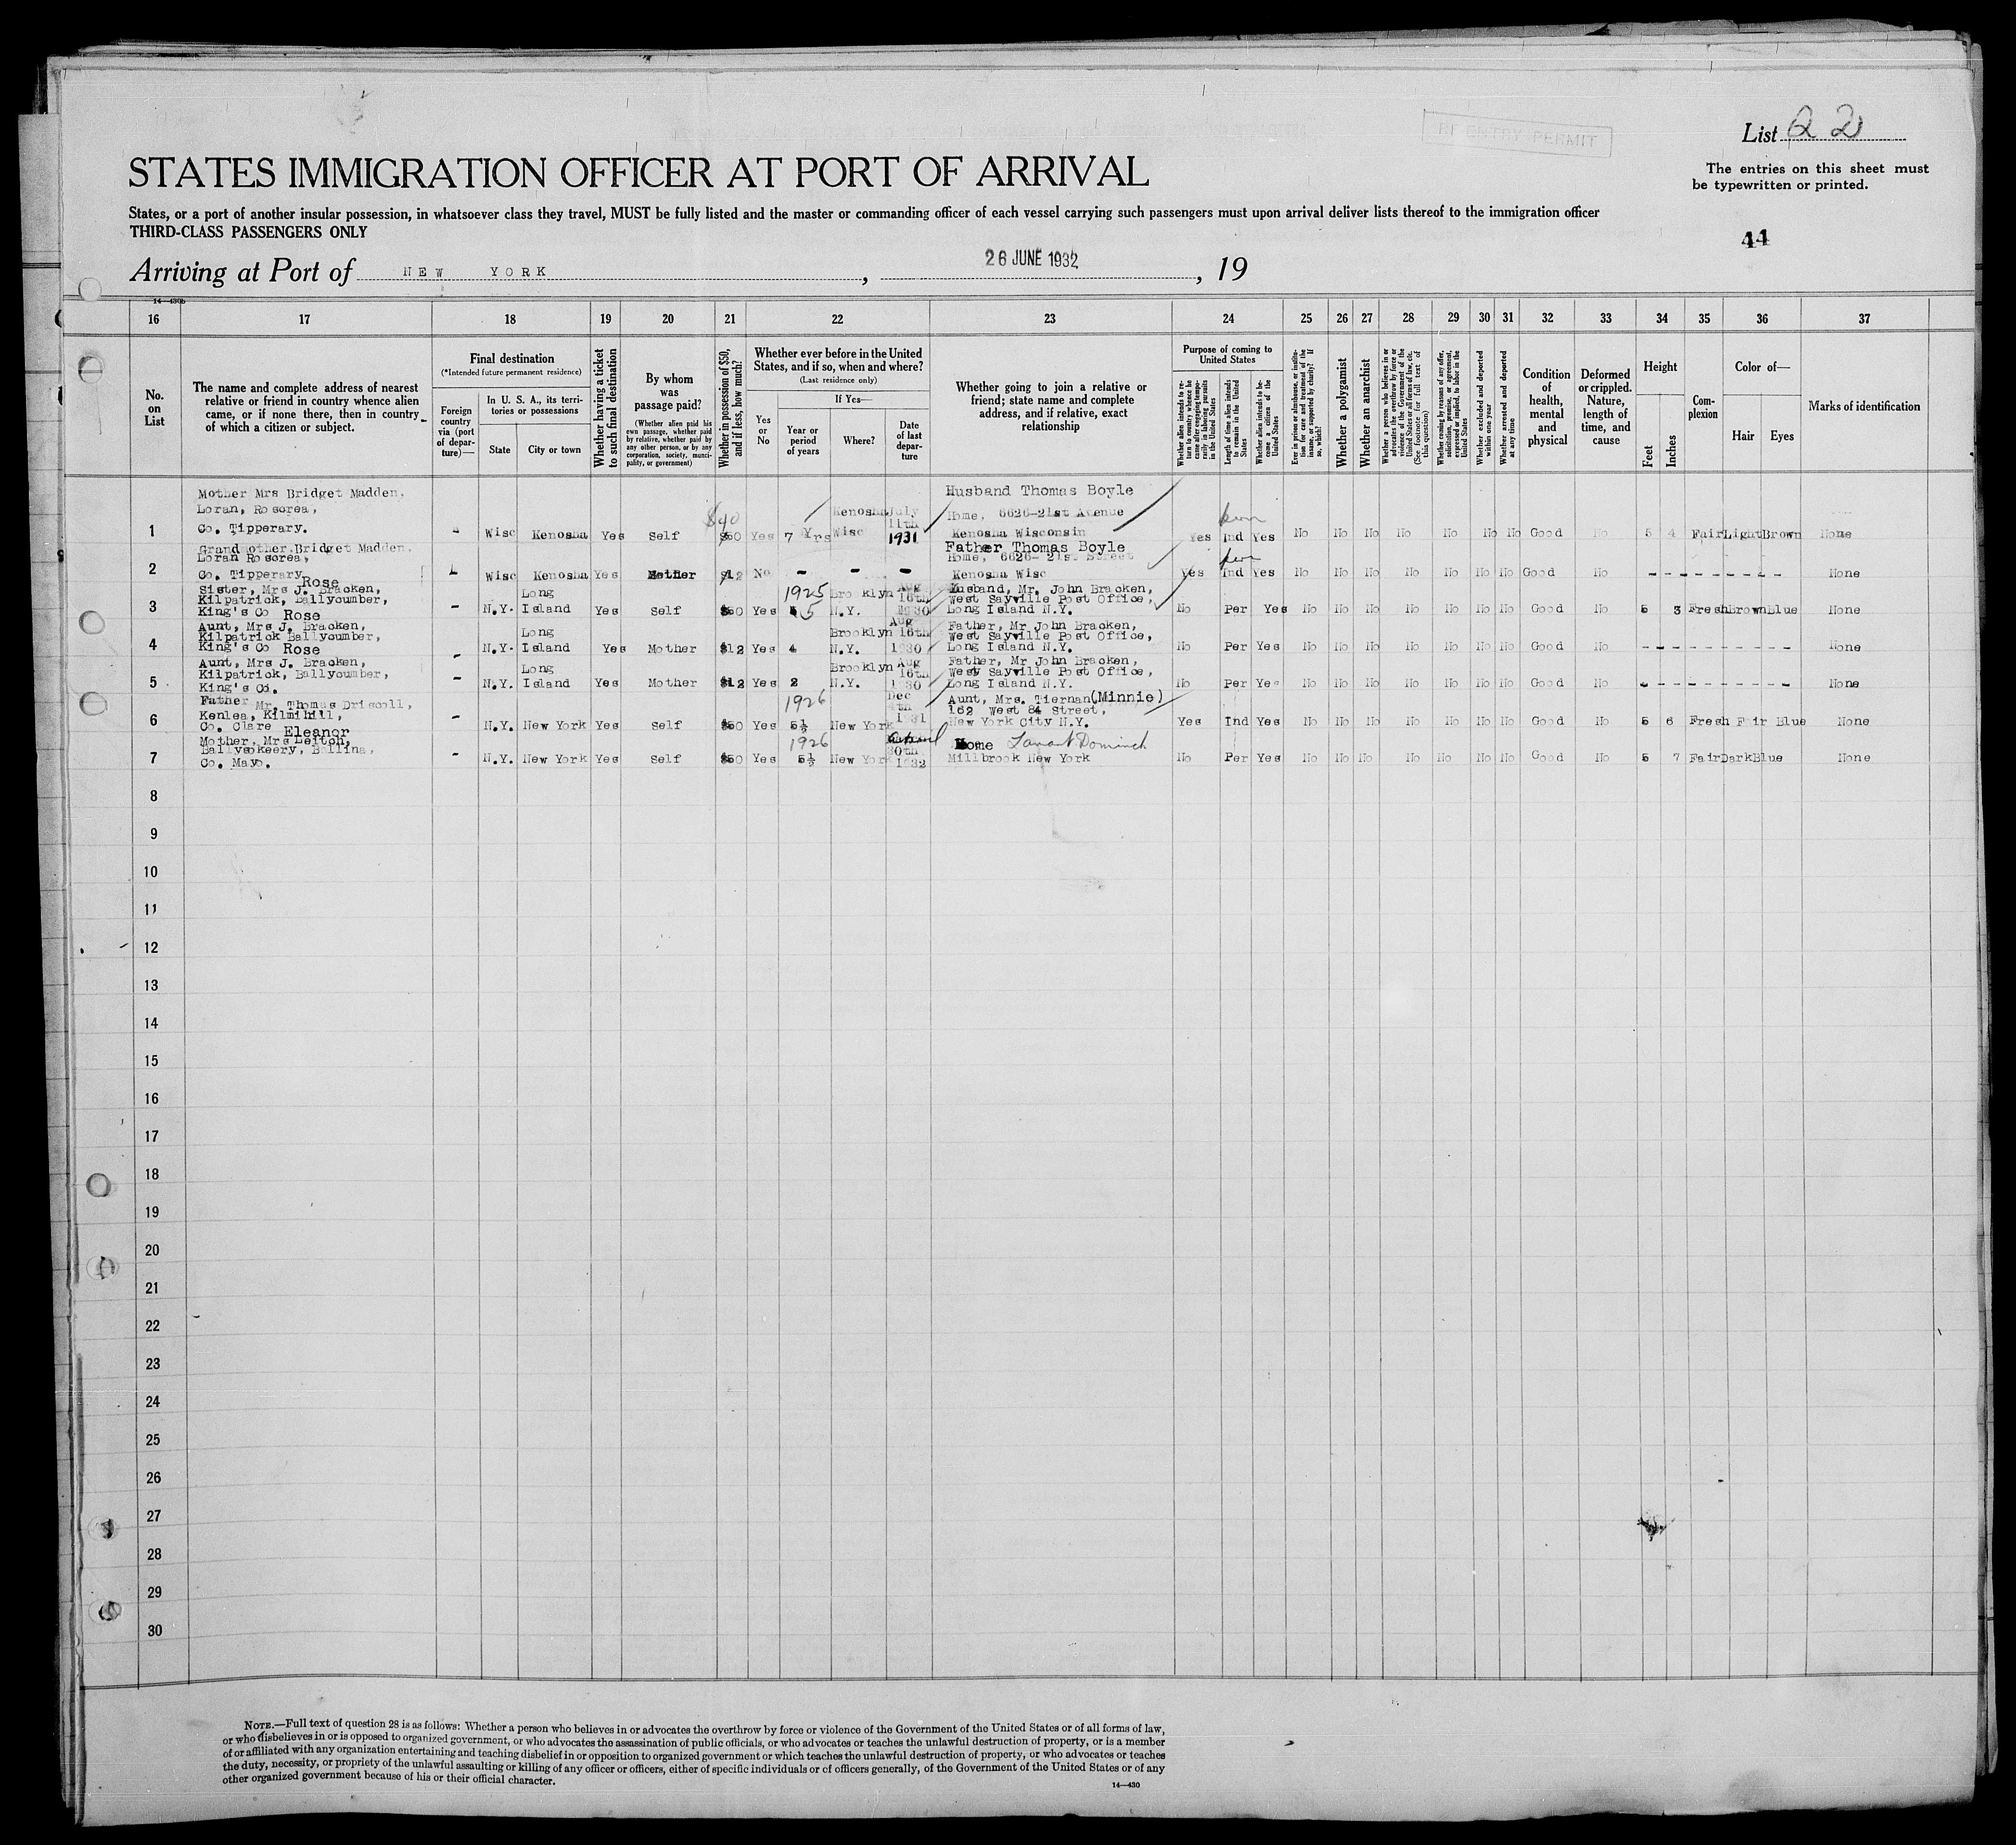 RE ENTRY PERMIT
List 22
STATES IMMIGRATION OFFICER AT PORT OF ARRIVAL
The entries on this sheet must
be typewritten or printed.
States, or a port of another insular possession, in whatsoever class they travel, MUST be fully listed and the master or commanding officer of each vessel carrying such passengers must upon arrival deliver lists thereof to the immigration officer
THIRD-CLASS PASSENGERS ONLY
44
Arriving at Port of NEW YORK, 26 JUNE 1932, 19
14—430b
16 17 18 19 20 21 22 23 24 25 26 27 28 29 30 31 32 33 34 35 36 37
No. on List
The name and complete address of nearest relative or friend in country whence alien came, or if none there, then in country of which a citizen or subject.
Final destination
(*Intended future permanent residence)
Foreign country via (port of departure)—
In U. S. A., its territories or possessions
State
City or town
Whether having a ticket to such final destination
By whom was passage paid?
(Whether alien paid his own passage, whether paid by relative, whether paid by any other person, or by any corporation, society, municipality, or government)
Whether in possession of $50, and if less, how much?
Whether ever before in the United States, and if so, when and where?
(Last residence only)
Yes or No
If Yes—
Year or period of years
Where?
Date of last departure
Whether going to join a relative or friend; state name and complete address, and if relative, exact relationship
Purpose of coming to United States
Whether alien intends to return to country whence he came after engaging temporarily in laboring pursuits in the United States
Length of time alien intends to remain in the United States
Whether alien intends to become a citizen of the United States
Ever in prison or almshouse, or institution for care and treatment of the insane, or supported by charity? If so, which?
Whether a polygamist
Whether an anarchist
Whether a person who believes in or advocates the overthrow by force or violence of the Government of the United States or all forms of law, etc. (See footnote for full text of this question)
Whether coming by reason of any offer, solicitation, promise, or agreement, expressed or implied, to labor in the United States
Whether excluded and deported within one year
Whether arrested and deported at any time
Condition of health, mental and physical
Deformed or crippled. Nature, length of time, and cause
Height
Feet
Inches
Complexion
Color of—
Hair
Eyes
Marks of identification
1 Mother Mrs Bridget Madden, Loran, Roscrea, Co. Tipperary. - Wisc Kenosha Yes Self $40 $50 Yes 7 Yrs Kenosha Wisc July 11th 1931 Husband Thomas Boyle Home, 6626-21st Avenue Kenosha Wisconsin Yes Ind Yes No No No No No No No Good No 5 4 Fair Light Brown None
2 Grandmother Bridget Madden, Loran Roscrea, Co. Tipperary - Wisc Kenosha Yes Mother $12 No - - - Father Thomas Boyle Home, 6626- 21st Street Kenosha Wisc Yes Ind Yes No No No No No No No Good No - - - - - - - - - None
3 Sister, Mrs J. Rose Bracken, Kilpatrick, Ballycumber, King's Co - N.Y. Long Island Yes Self $50 Yes 1925 5 Brooklyn N.Y. Aug 16th 1930 Husband, Mr. John Bracken, West Sayville Post Office, Long Island N.Y. No Per Yes No No No No No No No Good No 5 3 Fresh Brown Blue None
4 Aunt, Mrs J. Rose Bracken, Kilpatrick Ballycumber, King's Co - N.Y. Long Island Yes Mother $12 Yes 4 Brooklyn N.Y. Aug 16th 1930 Father, Mr John Bracken, West Sayville Post Office, Long Island N.Y. No Per Yes No No No No No No No Good No - - - - - - - - - None
5 Aunt, Mrs J. Rose Bracken, Kilpatrick, Ballycumber, King's Co. - N.Y. Long Island Yes Mother $12 Yes 2 Brooklyn N.Y. Aug 16th 1930 Father, Mr John Bracken, West Sayville Post Office, Long Island N.Y. No Per Yes No No No No No No No Good No - - - - - - - - - None
6 Father Mr. Thomas Driscoll, Kenlea, Kilmihill, Co. Clare - N.Y. New York Yes Self $50 Yes 1926 5½ New York Dec 4th 1931 Aunt, Mrs. Tiernan (Minnie) 162 West 84 Street, New York City N.Y. Yes Ind Yes No No No No No No No Good No 5 6 Fresh Fair Blue None
7 Mother, Mrs Eleanor Leiton, Ballysokeery, Ballina, Co. Mayo. - N.Y. New York Yes Self $50 Yes 1926 5½ New York 30th 1932 Home Millbrook New York No Per Yes No No No No No No No Good No 5 7 Fair Dark Blue None
8
9
10
11
12
13
14
15
16
17
18
19
20
21
22
23
24
25
26
27
28
29
30
NOTE.—Full text of question 28 is as follows: Whether a person who believes in or advocates the overthrow by force or violence of the Government of the United States or of all forms of law,
or who disbelieves in or is opposed to organized government, or who advocates the assassination of public officials, or who advocates or teaches the unlawful destruction of property, or is a member
of or affiliated with any organization entertaining and teaching disbelief in or opposition to organized government or which teaches the unlawful destruction of property, or who advocates or teaches
the duty, necessity, or propriety of the unlawful assaulting or killing of any officer or officers, either of specific individuals or of officers generally, of the Government of the United States or of any
other organized government because of his or their official character.
14—430